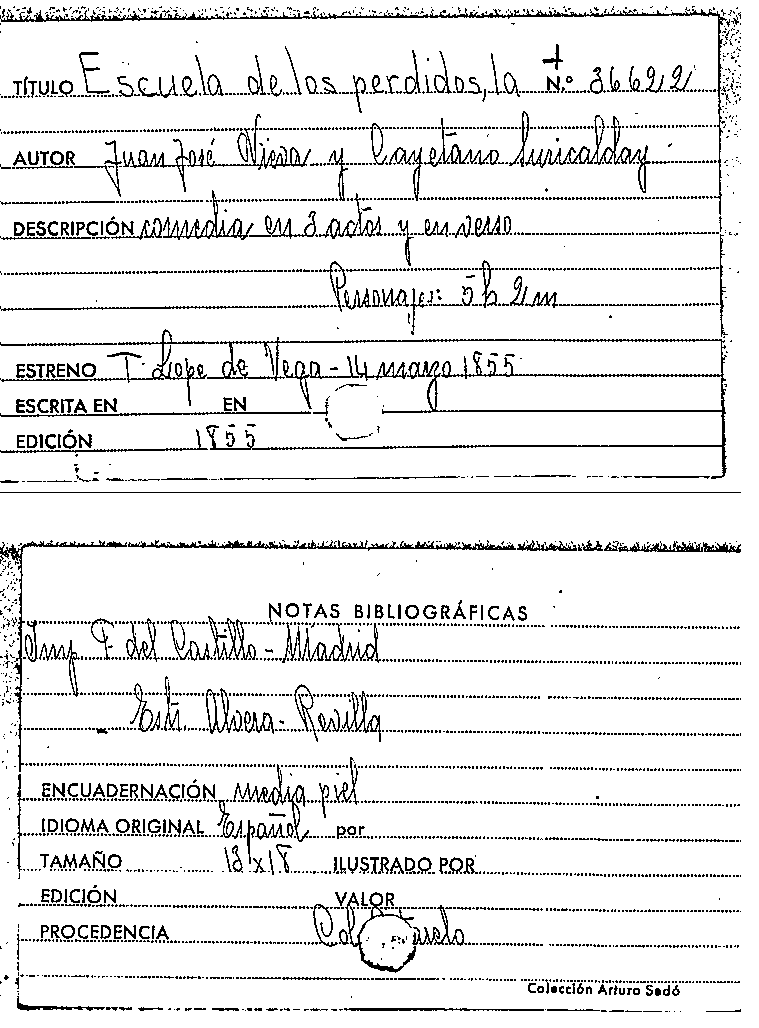 TÍTULO Escuela de los perdidos, la N.º 36622
AUTOR Juan José Nieva y Cayetano Suricalday
DESCRIPCIÓN comedia en 3 actos y en verso
Personajes: 5 h 2 m
ESTRENO T. Lope de Vega - 14 marzo 1855
ESCRITA EN EN
EDICIÓN 1855
NOTAS BIBLIOGRÁFICAS
Imp F. del Castillo - Madrid
Estr. Alvera - Revilla
ENCUADERNACIÓN media piel
IDIOMA ORIGINAL Español por
TAMAÑO 13 x 18 ILUSTRADO POR
EDICIÓN VALOR
PROCEDENCIA Col.
Colección Arturo Sedó